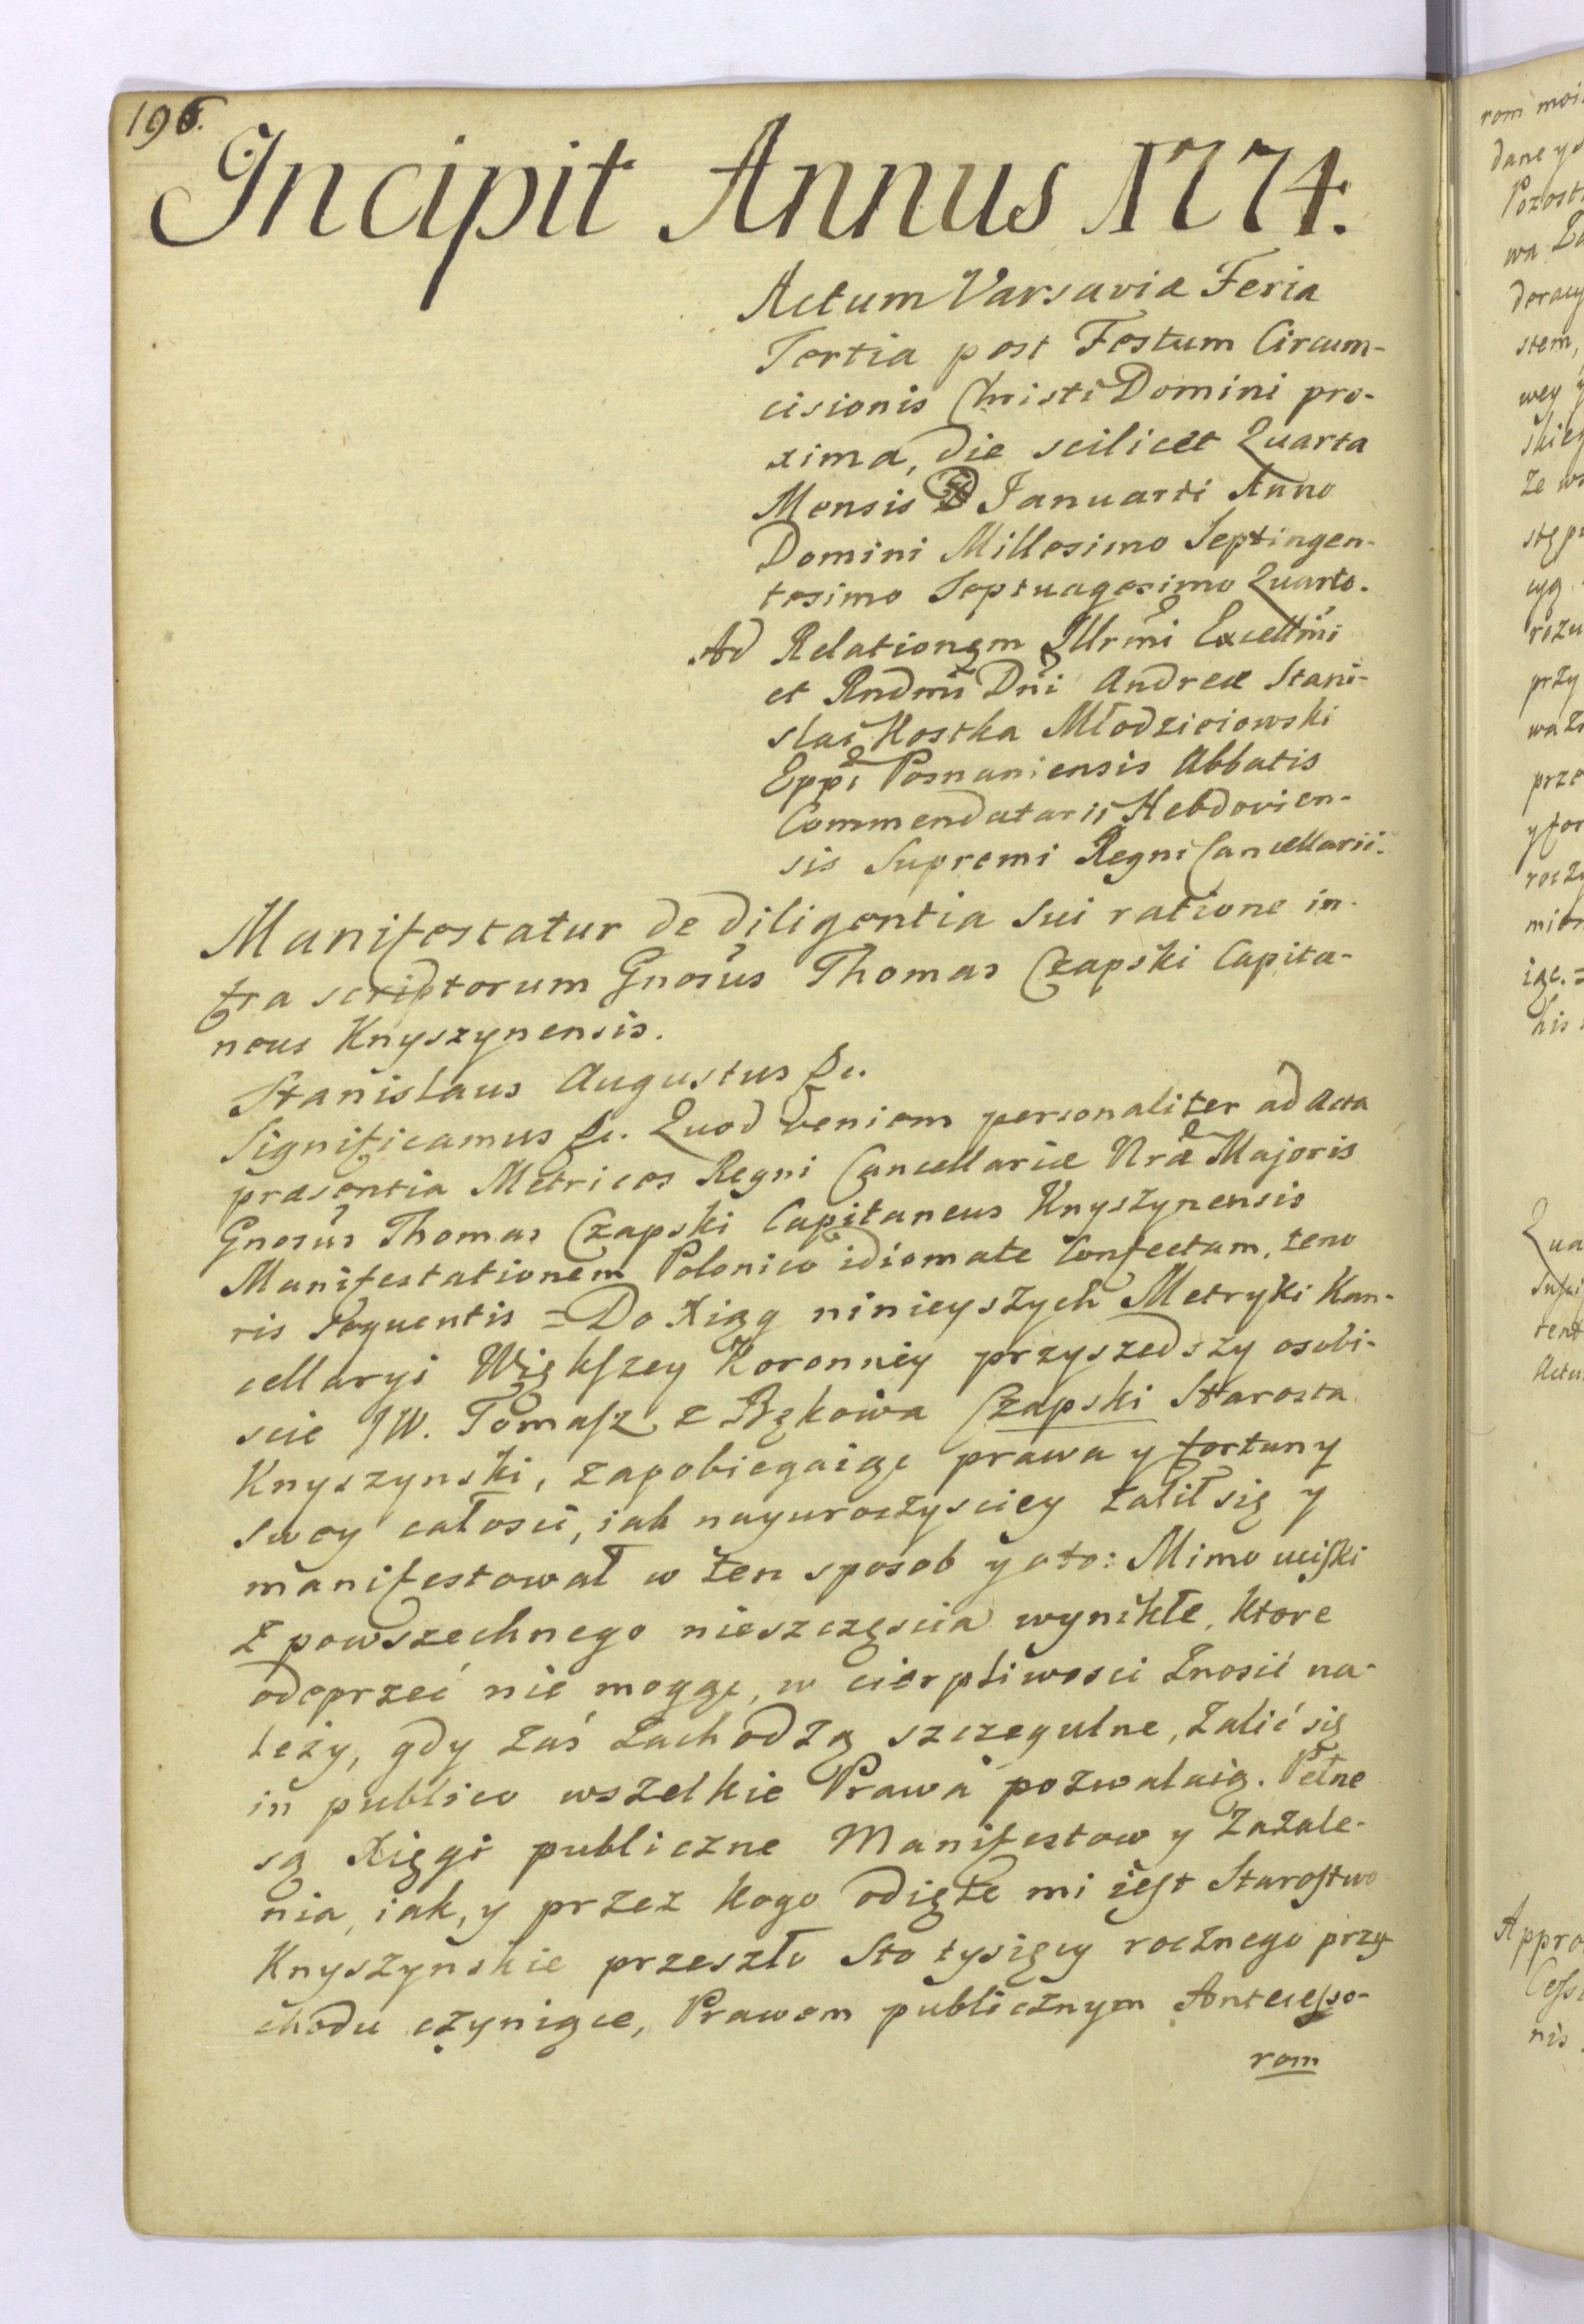 196.
Incipit Annus 1774.
Actum Varsaviæ Feria
Tertia post Festum Circum-
cisionis Christi Domini pro-
xima, die scilicet Quarta
Mensis Januarii Anno
Domini Millesimo Septingen-
tesimo Septuagesimo Quarto.
Ad Relationem Illrmi Excellmi
et Rndmi Dni Andreæ Stani-
slai Kostka Młodzieiowski
Eppi Posnaniensis Abbatis
Commendatarii Hebdovien-
sis Supremi Regni Cancellarii.
Manifestatur de diligentia sui ratione in-
fra scriptorum Gnosus Thomas Czapski Capita-
neus Knyszynensis.
Stanislaus Augustus &c.
Significamus &c. Quod veniens personaliter ad Acta
præsentia Metrices Regni Cancellariæ Nræ Majoris
Gnosus Thomas Czapski Capitaneus Knyszynensis
Manifestationem Polonico idiomate Confectam, teno
ris sequentis = Do Xiąg ninieyszych Metryki Kan-
cellaryi Więkſzey Koronney przyszedszy osobi-
scie JW. Tomaſz z Bąkowa Czapski Starosta
Knyszynski, zapobiegaiąc prawa y fortuny
swey całosci, iak nayuroczysciey żalił się y
manifestował w ten sposob y oto: Mimo uciſki
z powszechnego nieszczęscia wynikłe, ktore
odeprzeć nie mogąc, w cierpliwosci znosić na-
leży, gdy zaś zachodzą szczegulne, żalić się
in publico wszelkie Prawa pozwalaią. Pełne
są Xięgi publiczne Manifestow y Zażale-
nia, iak, y przez kogo odięte mi ieſt Staroſtwo
Knyszynskie przeszło Sto tysięcy rocznego przy
chodu czyniące, Prawem publicznym Anteceſso-
rom